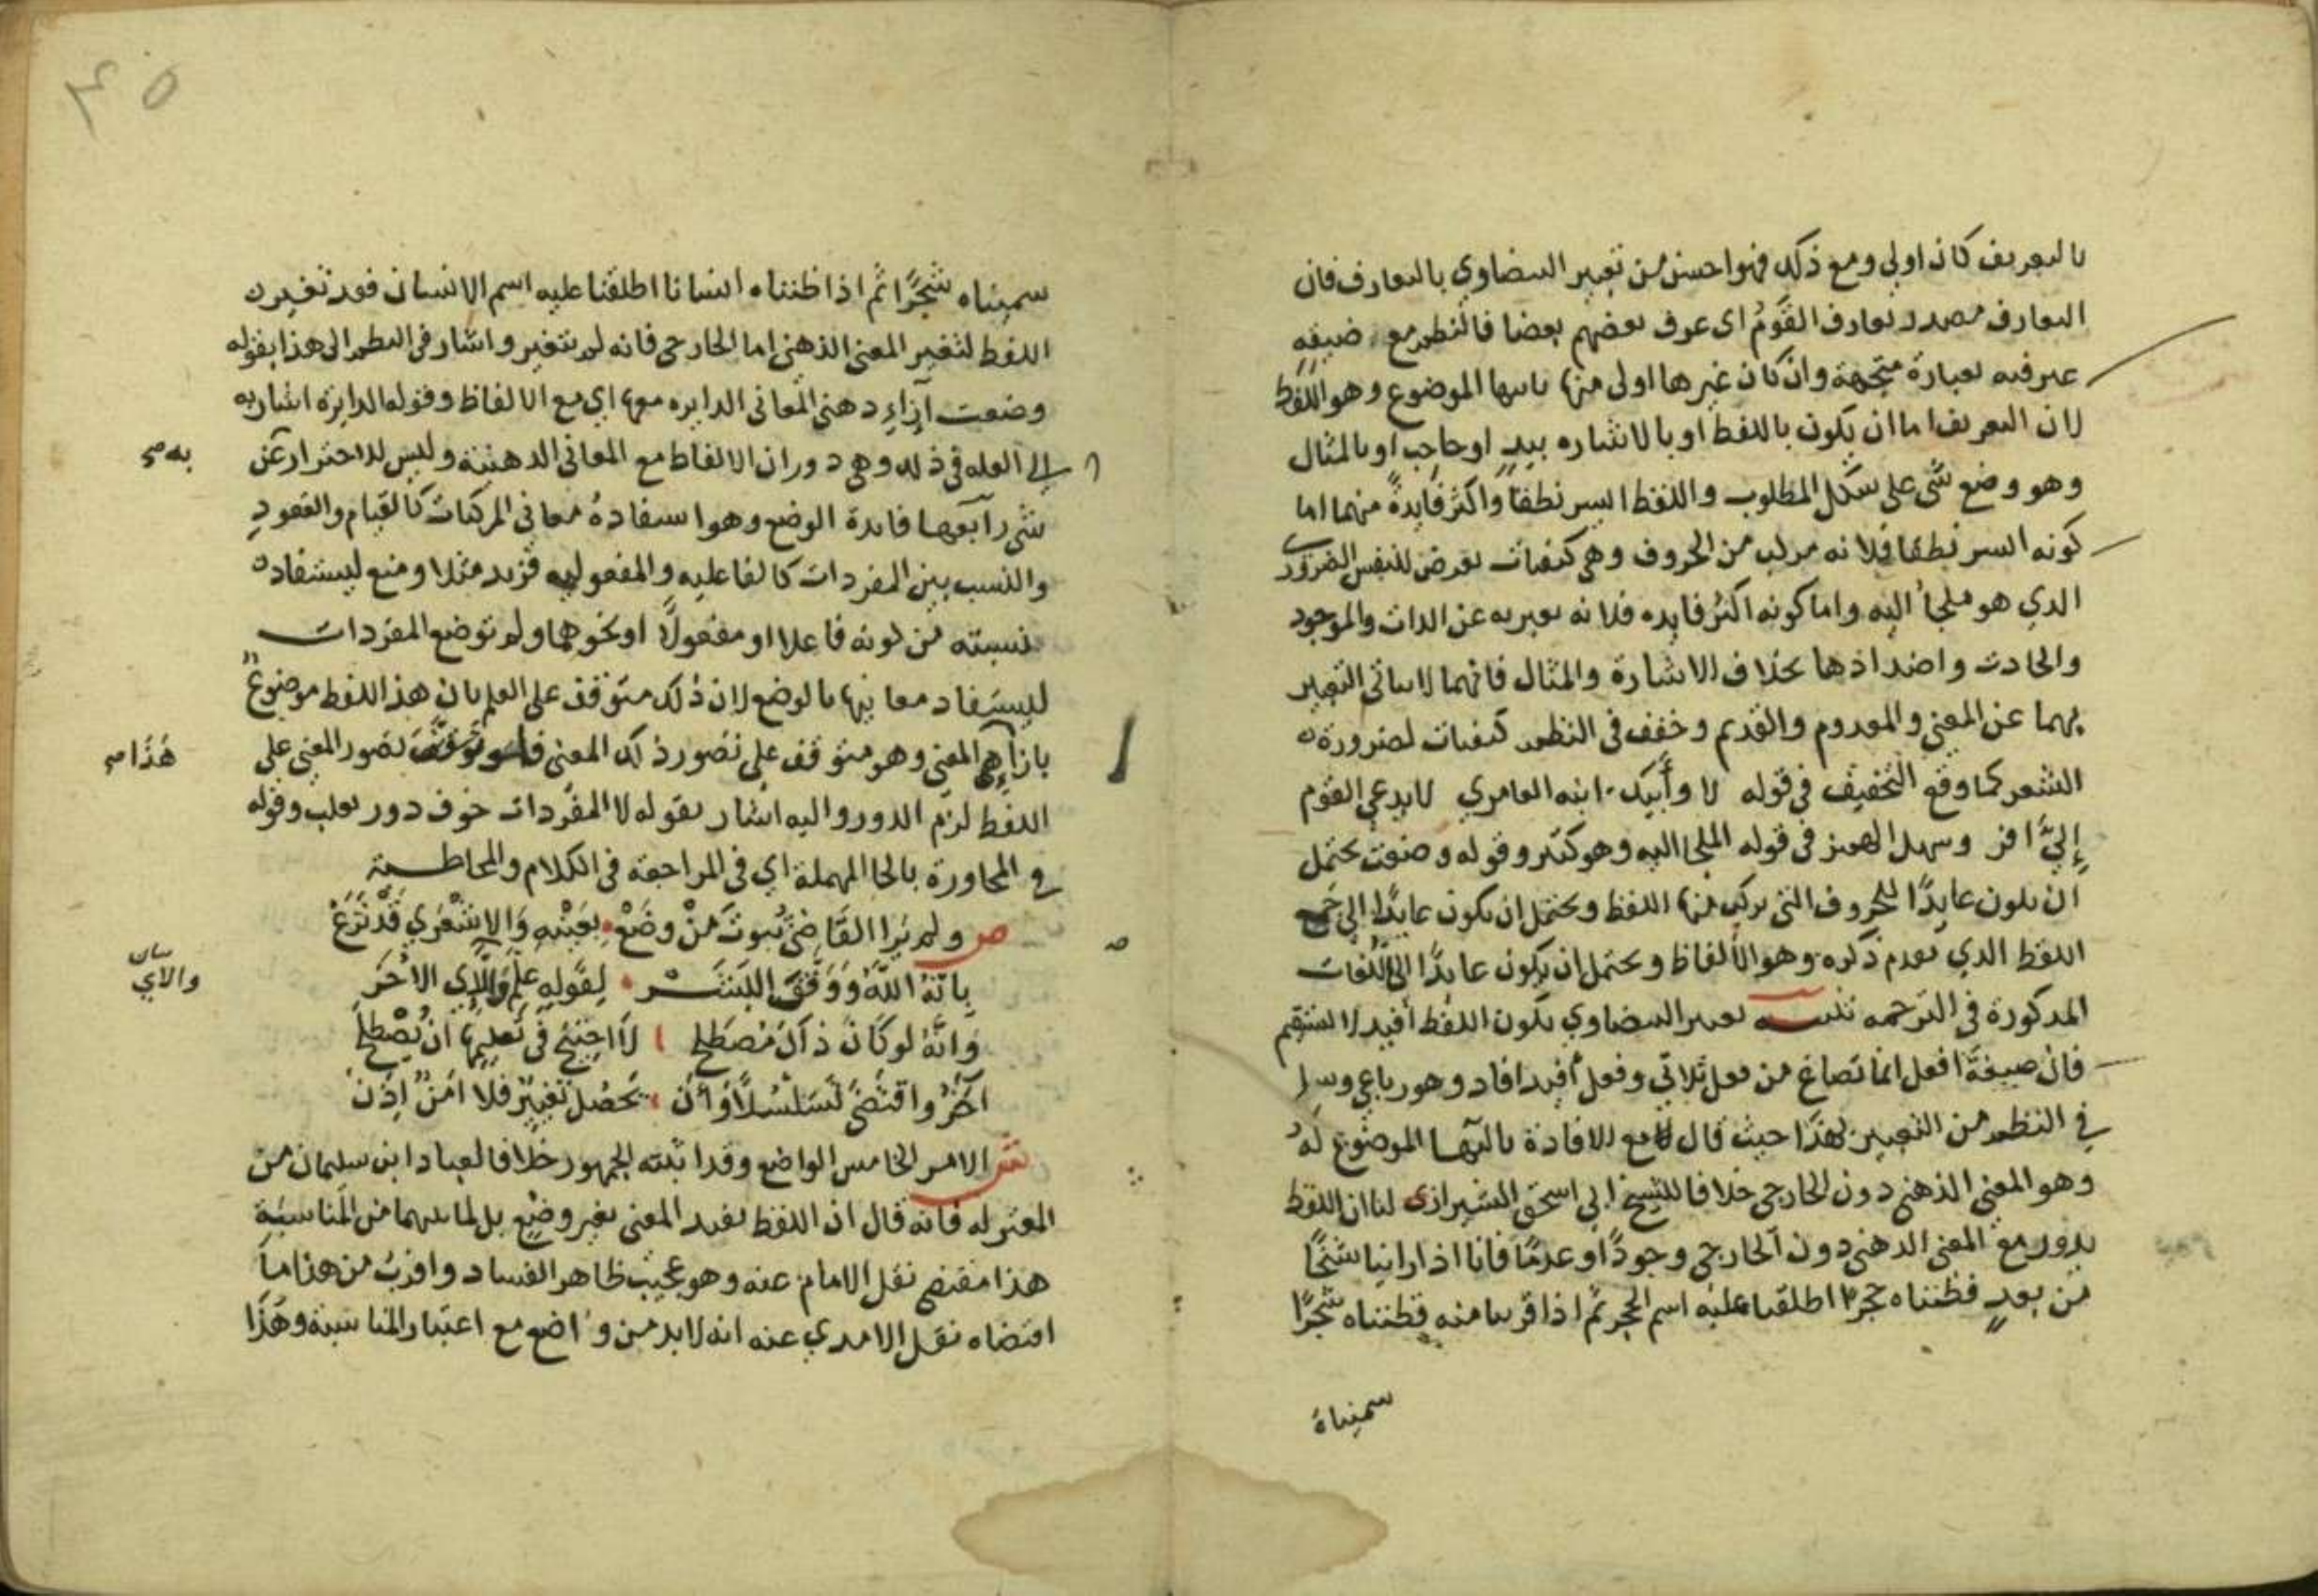 بالتعريف كان اولي ومع ذلك فهو احسن من تعبير البيضاوي بالتعارف فان
التعارف مصدر تعارف القوم اى عرف بعضهم بعضا فالنظم مع ضيقه
عبر فيه بعبارة متجهة وان كان غيرها اولى منها ثانيها الموضوع وهو اللفظ
لان التعريف اما ان يكون باللفظ او بالاشاره بيد او حاجب او بالمثال
وهو وضع شى على شكل المطلوب واللفظ ايسر نطقا واكثر فايدة منهما اما
كونه ايسر نطقا فلانه مركب من الحروف وهى كيفيات تعرض للنفس الضرورى
الذي هو ملجأ اليه واما كونه اكثر فايده فلانه يعبر به عن الذات والموجود
والحادث واضدادها بخلاف الاشارة والمثال فانهما لا يتاتى التعبير
بهما عن المعنى والمعدوم والقديم وخفف فى النظم كيفيات لضرورة
الشعر كما وقع التخفيف فى قوله لا وأبيك ابنه العامري لا يدعى القوم
إليّ افر وسهل الهمز فى قوله الملجا اليه وهو كثير وقوله وضعت يحتمل
ان يكون عايدًا للحروف التى يركب منها اللفظ ويحتمل ان يكون عايدًا الى جمع
اللفظ الذي تقدم ذكره وهو الألفاظ ويحتمل ان يكون عايدًا الى اللغات
المذكورة فى الترجمه تنبيه تعبير البيضاوي بكون اللفظ أفيد لا يستقيم
فان صيغة افعل انما تصاغ من فعل ثلاثي وفعل أفيد افاد وهو رباعي وسلم
في النظم من التعبير بهذا حيث قال مع الافادة ثالثها الموضوع له
وهو المعنى الذهني دون الخارجى خلافا للشيخ ابي اسحق الشيرازى لنا ان اللفظ
يدور مع المعنى الذهني دون الخارجي وجودًا وعدمًا فانا اذا راينا شبحًا
من بعدٍ فظنناه حجرًا اطلقنا عليه اسم الحجر ثم اذا قربنا منه فظنناه شجرًا
سميناهُ
٤٥
سميناه شجرًا ثم اذا ظنناه انسانا اطلقنا عليه اسم الانسان فقد تغير
اللفظ لتغير المعنى الذهني اما الخارجى فانه لم يتغير واشار فى النظم الى هذا بقوله
وضعت ازاء ذهني المعانى الدايره معها اي مع الالفاظ وقوله الدايرة اشار به
الى العله فى ذلك وهى دوران الالفاظ مع المعانى الذهنية وليس للاحتراز عن
به صح
شى رابعها فايدة الوضع وهو استفادة معانى المركبات كالقيام والقعود
والنسب بين المفردات كالفاعليه والمفعوليه فزيد مثلا وضع ليستفاد
نسبته من كونه فاعلا او مفعولاً او نحوهما ولم توضع المفردات
ليستفاد معانيها بالوضع لان ذلك متوقف على العلم بان هذا اللفظ موضوع
بازاء المعنى وهو متوقف على تصور ذلك المعنى فلو توقف تصور المعنى على
هذا صح
اللفظ لزم الدور واليه اشار بقوله لا المفردات خوف دور يغلب وقوله
فى المحاورة بالحا المهملة اي فى المراجعة فى الكلام والمخاطبة
ص ولم يرا القاضى ثبوت من وضع بعينه والاشعري قد نزع
بانه الله ووقف البشر لقوله علم والاي الأخر
بيان والاي
وانه لو كان ذاك مصطلح لااحتيج فى تعليمها ان يصطلح
آخر واقتضى تسلسلاً وأن يحصل تغيير فلا امن اذن
ش الامر الخامس الواضع وقد اثبته الجمهور خلافا لعباد ابن سليمان من
المعتزله فانه قال ان اللفظ يفيد المعنى بغير وضع بل لما بينهما من المناسبة
هذا مقتضى نقل الامام عنه وهو عجيب ظاهر الفساد واقرب من هذا ما
اقتضاه نقل الامدي عنه انه لابد من واضع مع اعتبار المناسبة وهذا